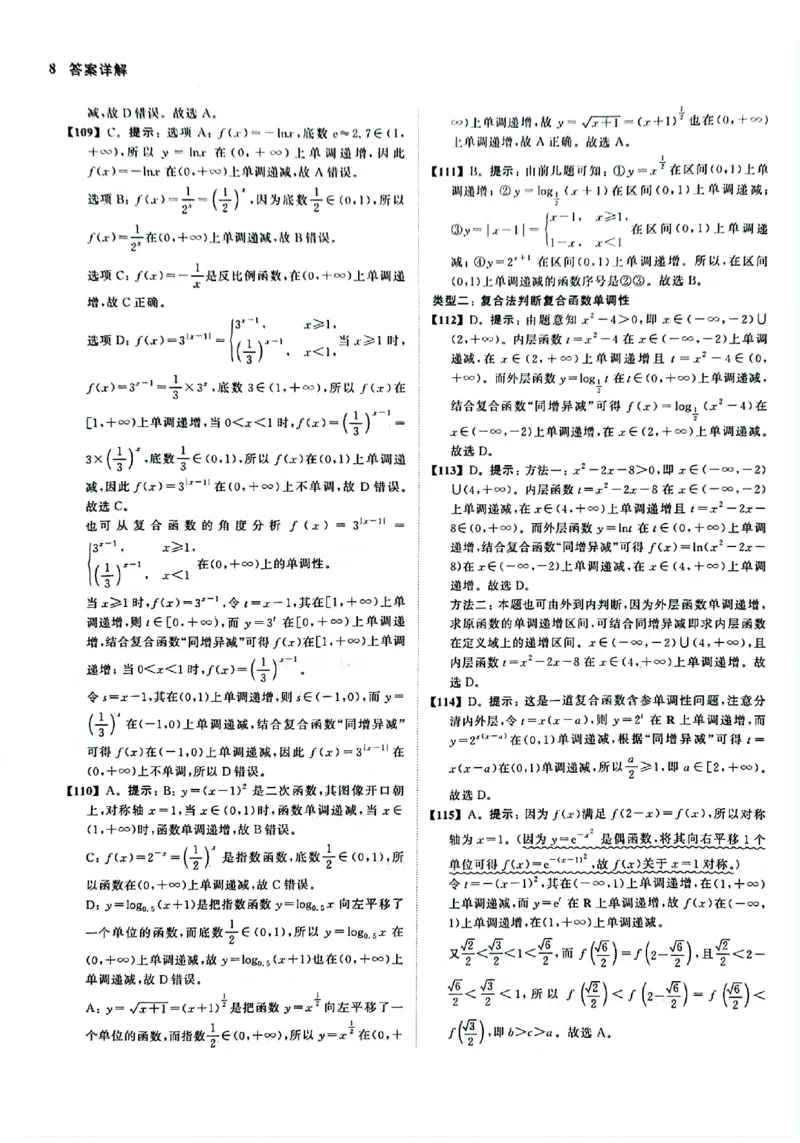 8 答案详解
减,故 D 错误。故选 A。
【109】C。提示:选项 A:f(x)=−lnx,底数 e≈2.7∈(1,
+∞),所以 y=lnx 在(0,+∞)上单调递增,因此
f(x)=−lnx 在(0,+∞)上单调递减,故 A 错误。
选项 B:f(x)=1/2^x=(1/2)^x,因为底数 1/2∈(0,1),所以
f(x)=1/2^x 在(0,+∞)上单调递减,故 B 错误。
选项 C:f(x)=−1/x 是反比例函数,在(0,+∞)上单调递
增,故 C 正确。
选项 D:f(x)=3^|x−1|={3^(x−1), x≥1, (1/3)^(x−1), x<1, 当 x≥1 时,
f(x)=3^(x−1)=1/3×3^x,底数 3∈(1,+∞),所以 f(x)在
[1,+∞)上单调递增,当 0<x<1 时,f(x)=(1/3)^(x−1)=
3×(1/3)^x,底数 1/3∈(0,1),所以 f(x)在(0,1)上单调递
减,因此 f(x)=3^|x−1| 在(0,+∞)上不单调,故 D 错误。
故选 C。
也可从复合函数的角度分析 f(x)=3^|x−1|=
{3^(x−1), x≥1, (1/3)^(x−1), x<1 在(0,+∞)上的单调性。
当 x≥1 时,f(x)=3^(x−1),令 t=x−1,其在[1,+∞)上单
调递增,则 t∈[0,+∞),而 y=3^t 在[0,+∞)上单调递
增,结合复合函数“同增异减”可得 f(x)在[1,+∞)上单调
递增;当 0<x<1 时,f(x)=(1/3)^(x−1)。
令 s=x−1,其在(0,1)上单调递增,则 s∈(−1,0),而 y=
(1/3)^s 在(−1,0)上单调递减,结合复合函数“同增异减”
可得 f(x)在(−1,0)上单调递减,因此 f(x)=3^|x−1| 在
(0,+∞)上不单调,所以 D 错误。
【110】A。提示:B:y=(x−1)² 是二次函数,其图像开口朝
上,对称轴 x=1,当 x∈(0,1)时,函数单调递减,当 x∈
(1,+∞)时,函数单调递增,故 B 错误。
C:f(x)=2^(−x)=(1/2)^x 是指数函数,底数 1/2∈(0,1),所
以函数在(0,+∞)上单调递减,故 C 错误。
D:y=log₀.₅(x+1)是把指数函数 y=log₀.₅x 向左平移了
一个单位的函数,而底数 1/2∈(0,1),所以 y=log₀.₅x 在
(0,+∞)上单调递减,故 y=log₀.₅(x+1)也在(0,+∞)上
单调递减,故 D 错误。
A:y=√(x+1)=(x+1)^(1/2) 是把函数 y=x^(1/2) 向左平移了一
个单位的函数,而指数 1/2∈(0,+∞),所以 y=x^(1/2) 在(0,+
∞)上单调递增,故 y=√(x+1)=(x+1)^(1/2) 也在(0,+∞)
上单调递增,故 A 正确。故选 A。
【111】B。提示:由前几题可知:①y=x^(1/2) 在区间(0,1)上单
调递增;②y=log_(1/2)(x+1)在区间(0,1)上单调递减;
③y=|x−1|={x−1, x≥1, 1−x, x<1 在区间(0,1)上单调递
减;④y=2^(x+1) 在区间(0,1)上单调递增。所以,在区间
(0,1)上单调递减的函数序号是②③。故选 B。
类型二:复合法判断复合函数单调性
【112】D。提示:由题意知 x²−4>0,即 x∈(−∞,−2)∪
(2,+∞)。内层函数 t=x²−4 在 x∈(−∞,−2)上单调
递减,在 x∈(2,+∞)上单调递增且 t=x²−4∈(0,
+∞)。而外层函数 y=log_(1/2)t 在 t∈(0,+∞)上单调递减,
结合复合函数“同增异减”可得 f(x)=log_(1/2)(x²−4)在
x∈(−∞,−2)上单调递增,在 x∈(2,+∞)上单调递减。
故选 D。
【113】D。提示:方法一:x²−2x−8>0,即 x∈(−∞,−2)
∪(4,+∞)。内层函数 t=x²−2x−8 在 x∈(−∞,−2)
上单调递减,在 x∈(4,+∞)上单调递增且 t=x²−2x−
8∈(0,+∞)。而外层函数 y=lnt 在 t∈(0,+∞)上单调
递增,结合复合函数“同增异减”可得 f(x)=ln(x²−2x−
8)在 x∈(−∞,−2)上单调递减,在 x∈(4,+∞)上单调
递增。故选 D。
方法二:本题也可由外到内判断,因为外层函数单调递增,
求原函数的单调递增区间,可结合同增异减即求内层函数
在定义域上的递增区间。x∈(−∞,−2)∪(4,+∞),且
内层函数 t=x²−2x−8 在 x∈(4,+∞)上单调递增。故
选 D。
【114】D。提示:这是一道复合函数含参单调性问题,注意分
清内外层,令 t=x(x−a),则 y=2^t 在 R 上单调递增,而
y=2^(x(x−a)) 在(0,1)单调递减,根据“同增异减”可得 t=
x(x−a)在(0,1)单调递减,所以 a/2≥1,即 a∈[2,+∞)。
故选 D。
【115】A。提示:因为 f(x)满足 f(2−x)=f(x),所以对称
轴为 x=1。(因为 y=e^(−x²) 是偶函数,将其向右平移 1 个
单位可得 f(x)=e^(−(x−1)²),故 f(x)关于 x=1 对称。)
令 t=−(x−1)²,其在(−∞,1)上单调递增,在(1,+∞)
上单调递减,而 y=e^t 在 R 上单调递增,故 f(x)在(−∞,
1)上单调递增,在(1,+∞)上单调递减。
又 √2/2<√3/2<1<√6/2,而 f(√6/2)=f(2−√6/2),且 √2/2<2−
√6/2<√3/2<1,所以 f(√2/2)<f(2−√6/2)=f(√6/2)<
f(√3/2),即 b>c>a。故选 A。